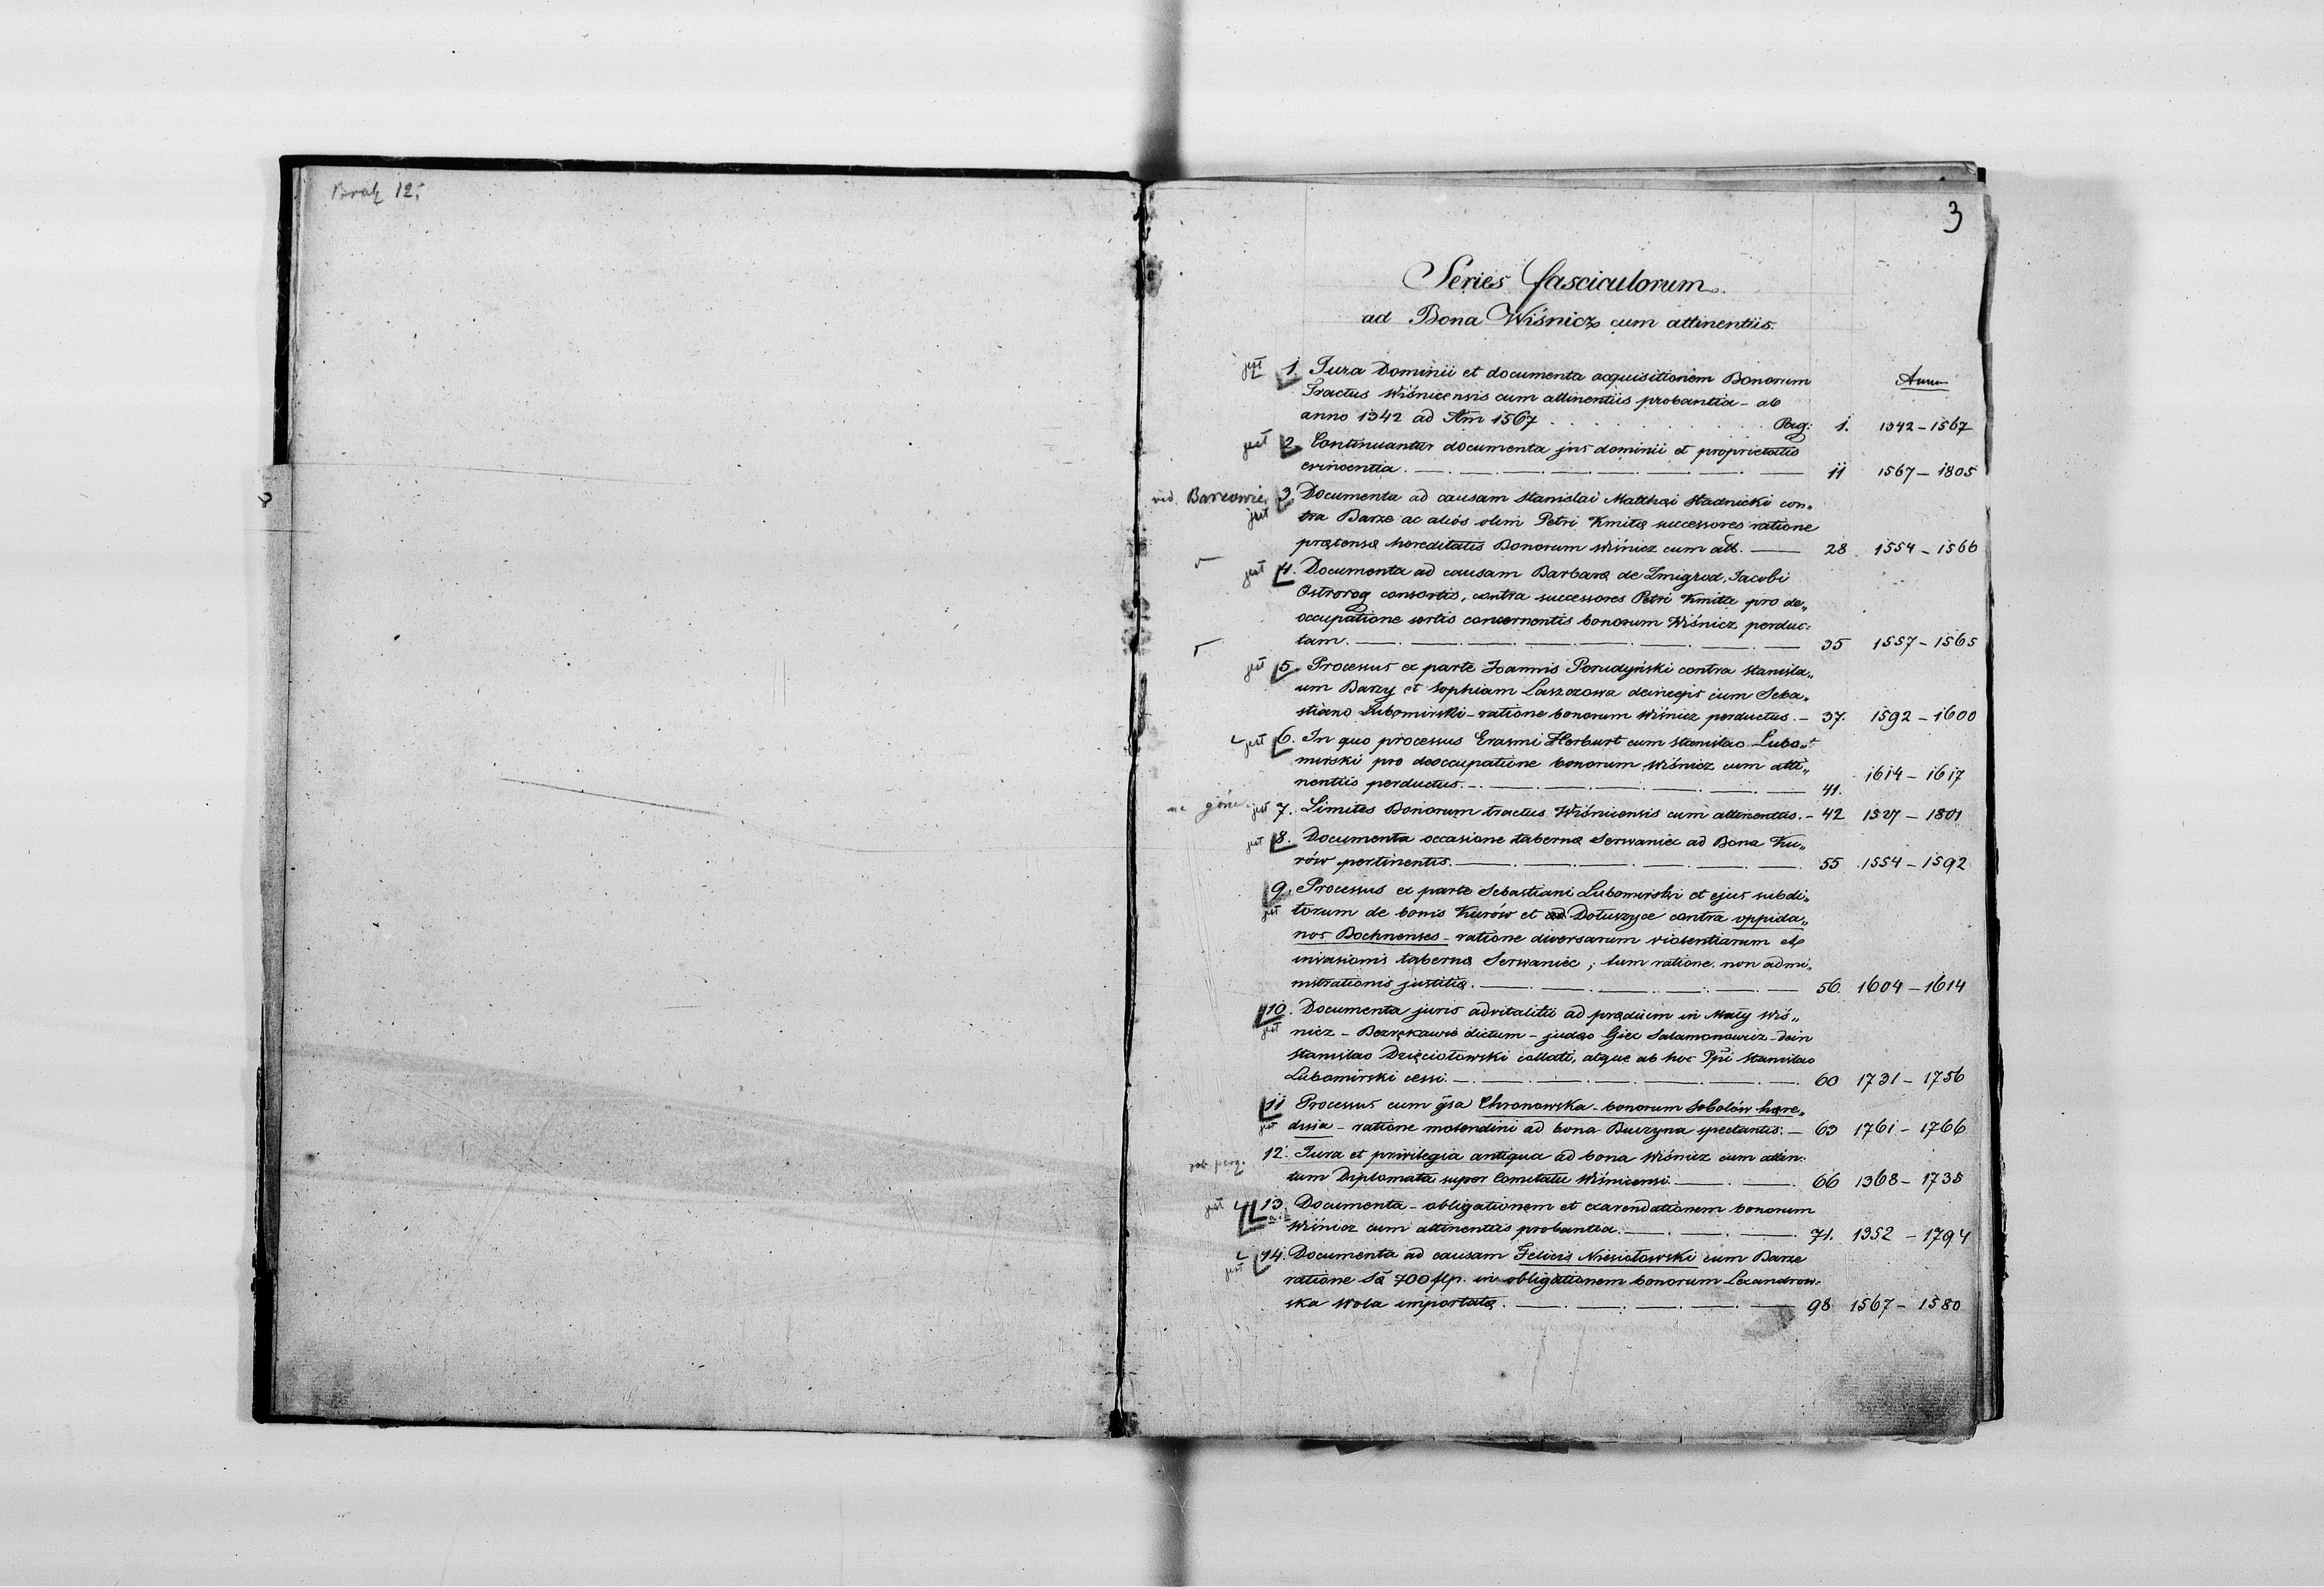 Brak 12.
3
Series fasciculorum
ad Bona Wiśnicz cum attinentiis.
Annus
jest 1. Jura Dominii et documenta acquisitionem Bonorum
Tractus Wiśnicensis cum attinentiis probantia - ab
anno 1342 ad Am 1567 . . . . . . Pag: 1. 1342 - 1567
jest 2. Continuantur documenta jus dominii et proprietatis
evincentia. 11 1567 - 1805
3. Documenta ad causam Stanislai Matthæi Stadnicki con„
jest tra Barze ac alios olim Petri Kmitæ successores ratione
prætensæ hereditatis Bonorum Wiśnicz cum att. 28 1554 - 1566
jest 4. Documenta ad causam Barbaræ de Zmigrod, Jacobi
Ostrorog consortis, contra successores Petri Kmita pro de„
occupatione sortis concernentis bonorum Wiśnicz perduc:
tam. 35 1557 - 1565
jest 5. Processus ex parte Joannis Porudyński contra Stanisla„
um Barzy et Sophiam Laszczowa deinceps cum Seba„
stiano Lubomirski - ratione bonorum Wiśnicz perductus. - 37. 1592 - 1600
jest 6. In quo processus Erasmi Herburt cum Stanislao Lubo„
mirski pro deoccupatione bonorum Wiśnicz cum atti„
nentiis perductus. 41. 1614 - 1617
jest 7. Limites Bonorum tractus Wiśnicensis cum attinentiis. - 42 1527 - 1801
jest 8. Documenta occasione tabernæ Serwaniec ad Bona Ku„
rów pertinentis. 55 1554 - 1592
9. Processus ex parte Sebastiani Lubomirski et ejus subdi„
jest torum de bonis Kurów et Dołuszyce contra oppida„
nos Bochnenses - ratione diversarum violentiarum et
invasionis tabernæ Serwaniec; tum ratione non admi„
nistrationis justitiæ. 56. 1604 - 1614
10. Documenta juris advitalitii ad prædium in Mały Wiś„
jest nicz - dictum - judæo Salamonowicz - dein
Stanislao Dzięciołowski collati, atque ab hoc Ppi Stanislao
Lubomirski cessi. 60 1731 - 1756
11 Processus cum gsa Chronowska - bonorum Sobolów hære„
jest dissa - ratione molendini ad bona Buczyna spectantis. - 63 1761 - 1766
12. Jura et privilegia antiqua ad bona Wiśnicz cum attin:
tum Diplomata super Comitatu Wiśnicensi. 66 1368 - 1735
jest 13. Documenta - obligationem et exarendationem bonorum
Wiśnicz cum attinentiis probantia. 71. 1352 - 1794
jest 14. Documenta ad causam Felicis Niesiołowski cum Barze
ratione Sæ 700 flp. in obligationem bonorum Lexandrow:
ska Wola importatæ. 98 1567 - 1580